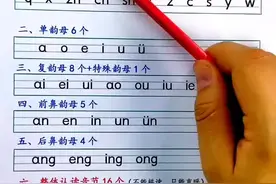 q x zh ch z c s y w
二、单韵母6个
a o e i u ü
三、复韵母8个+特殊韵母1个
ai ei ui ao ou iu ie
四、前鼻韵母5个
an en in un ün
五、后鼻韵母4个
ang eng ing ong
六、整体认读音节16个